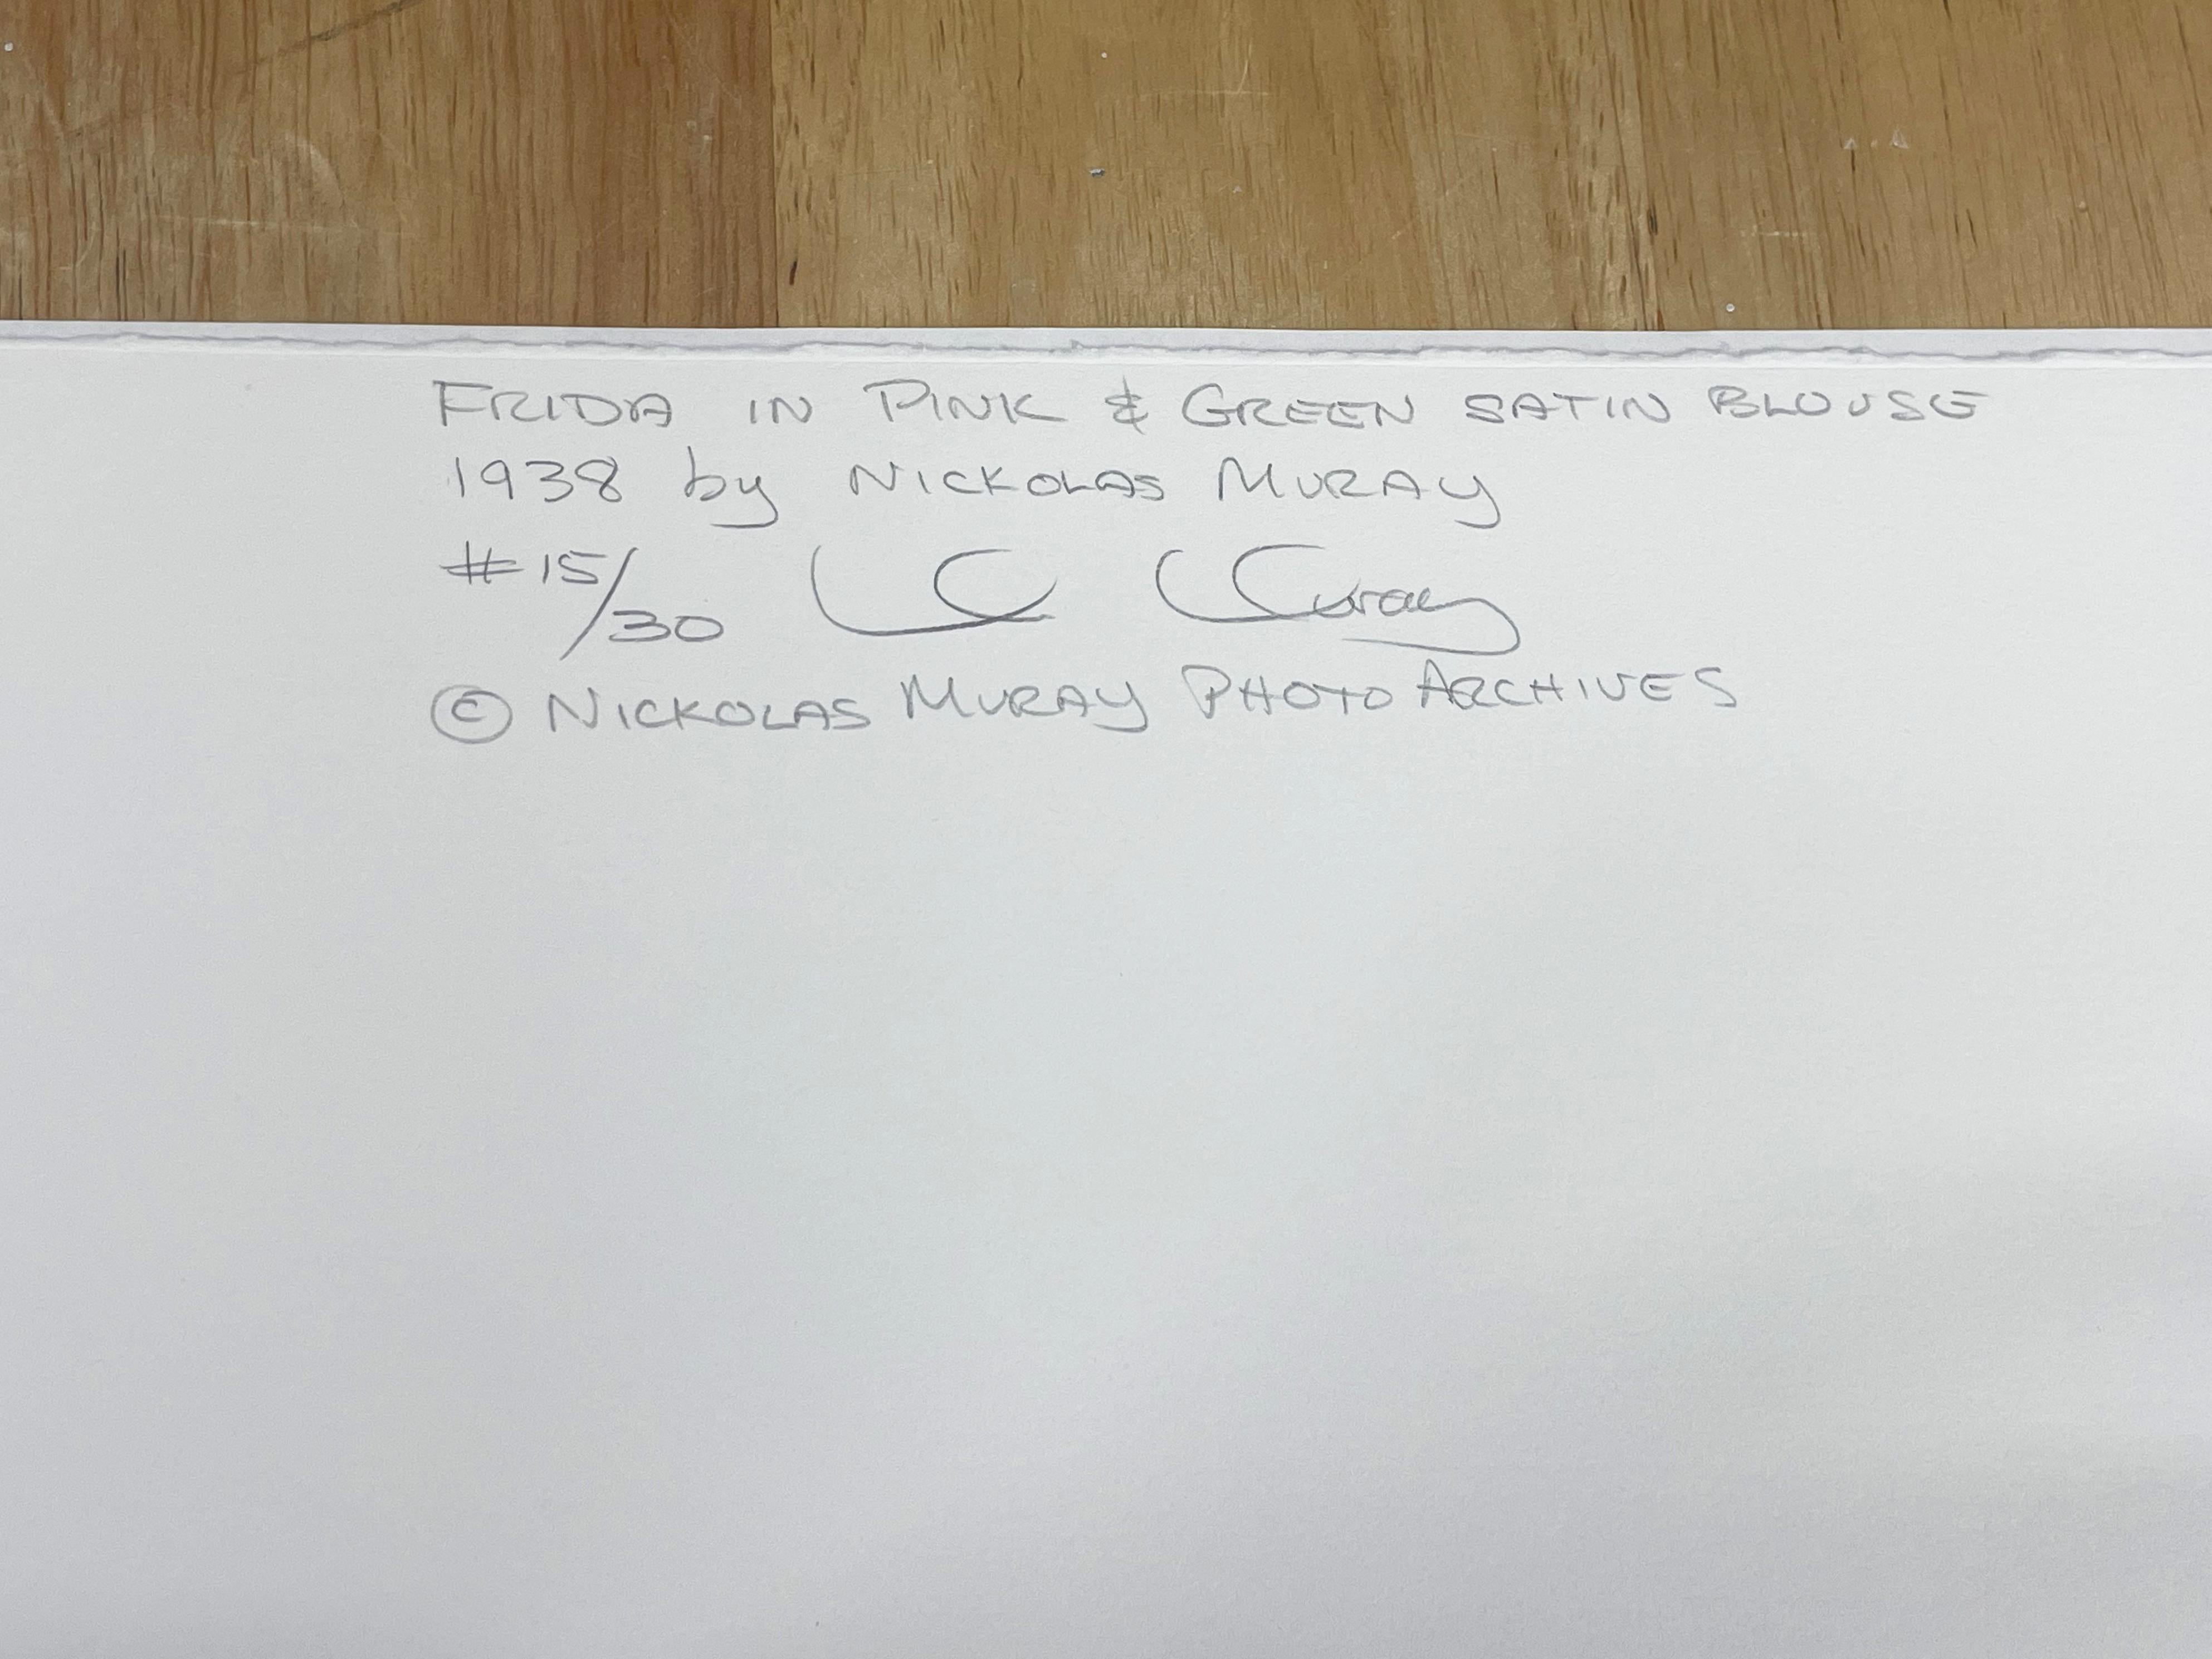 FRIDA IN PINK & GREEN SATIN BLOUSE
1938 by NICKOLAS MURAY
#15/30 Muray
© NICKOLAS MURAY PHOTO ARCHIVES